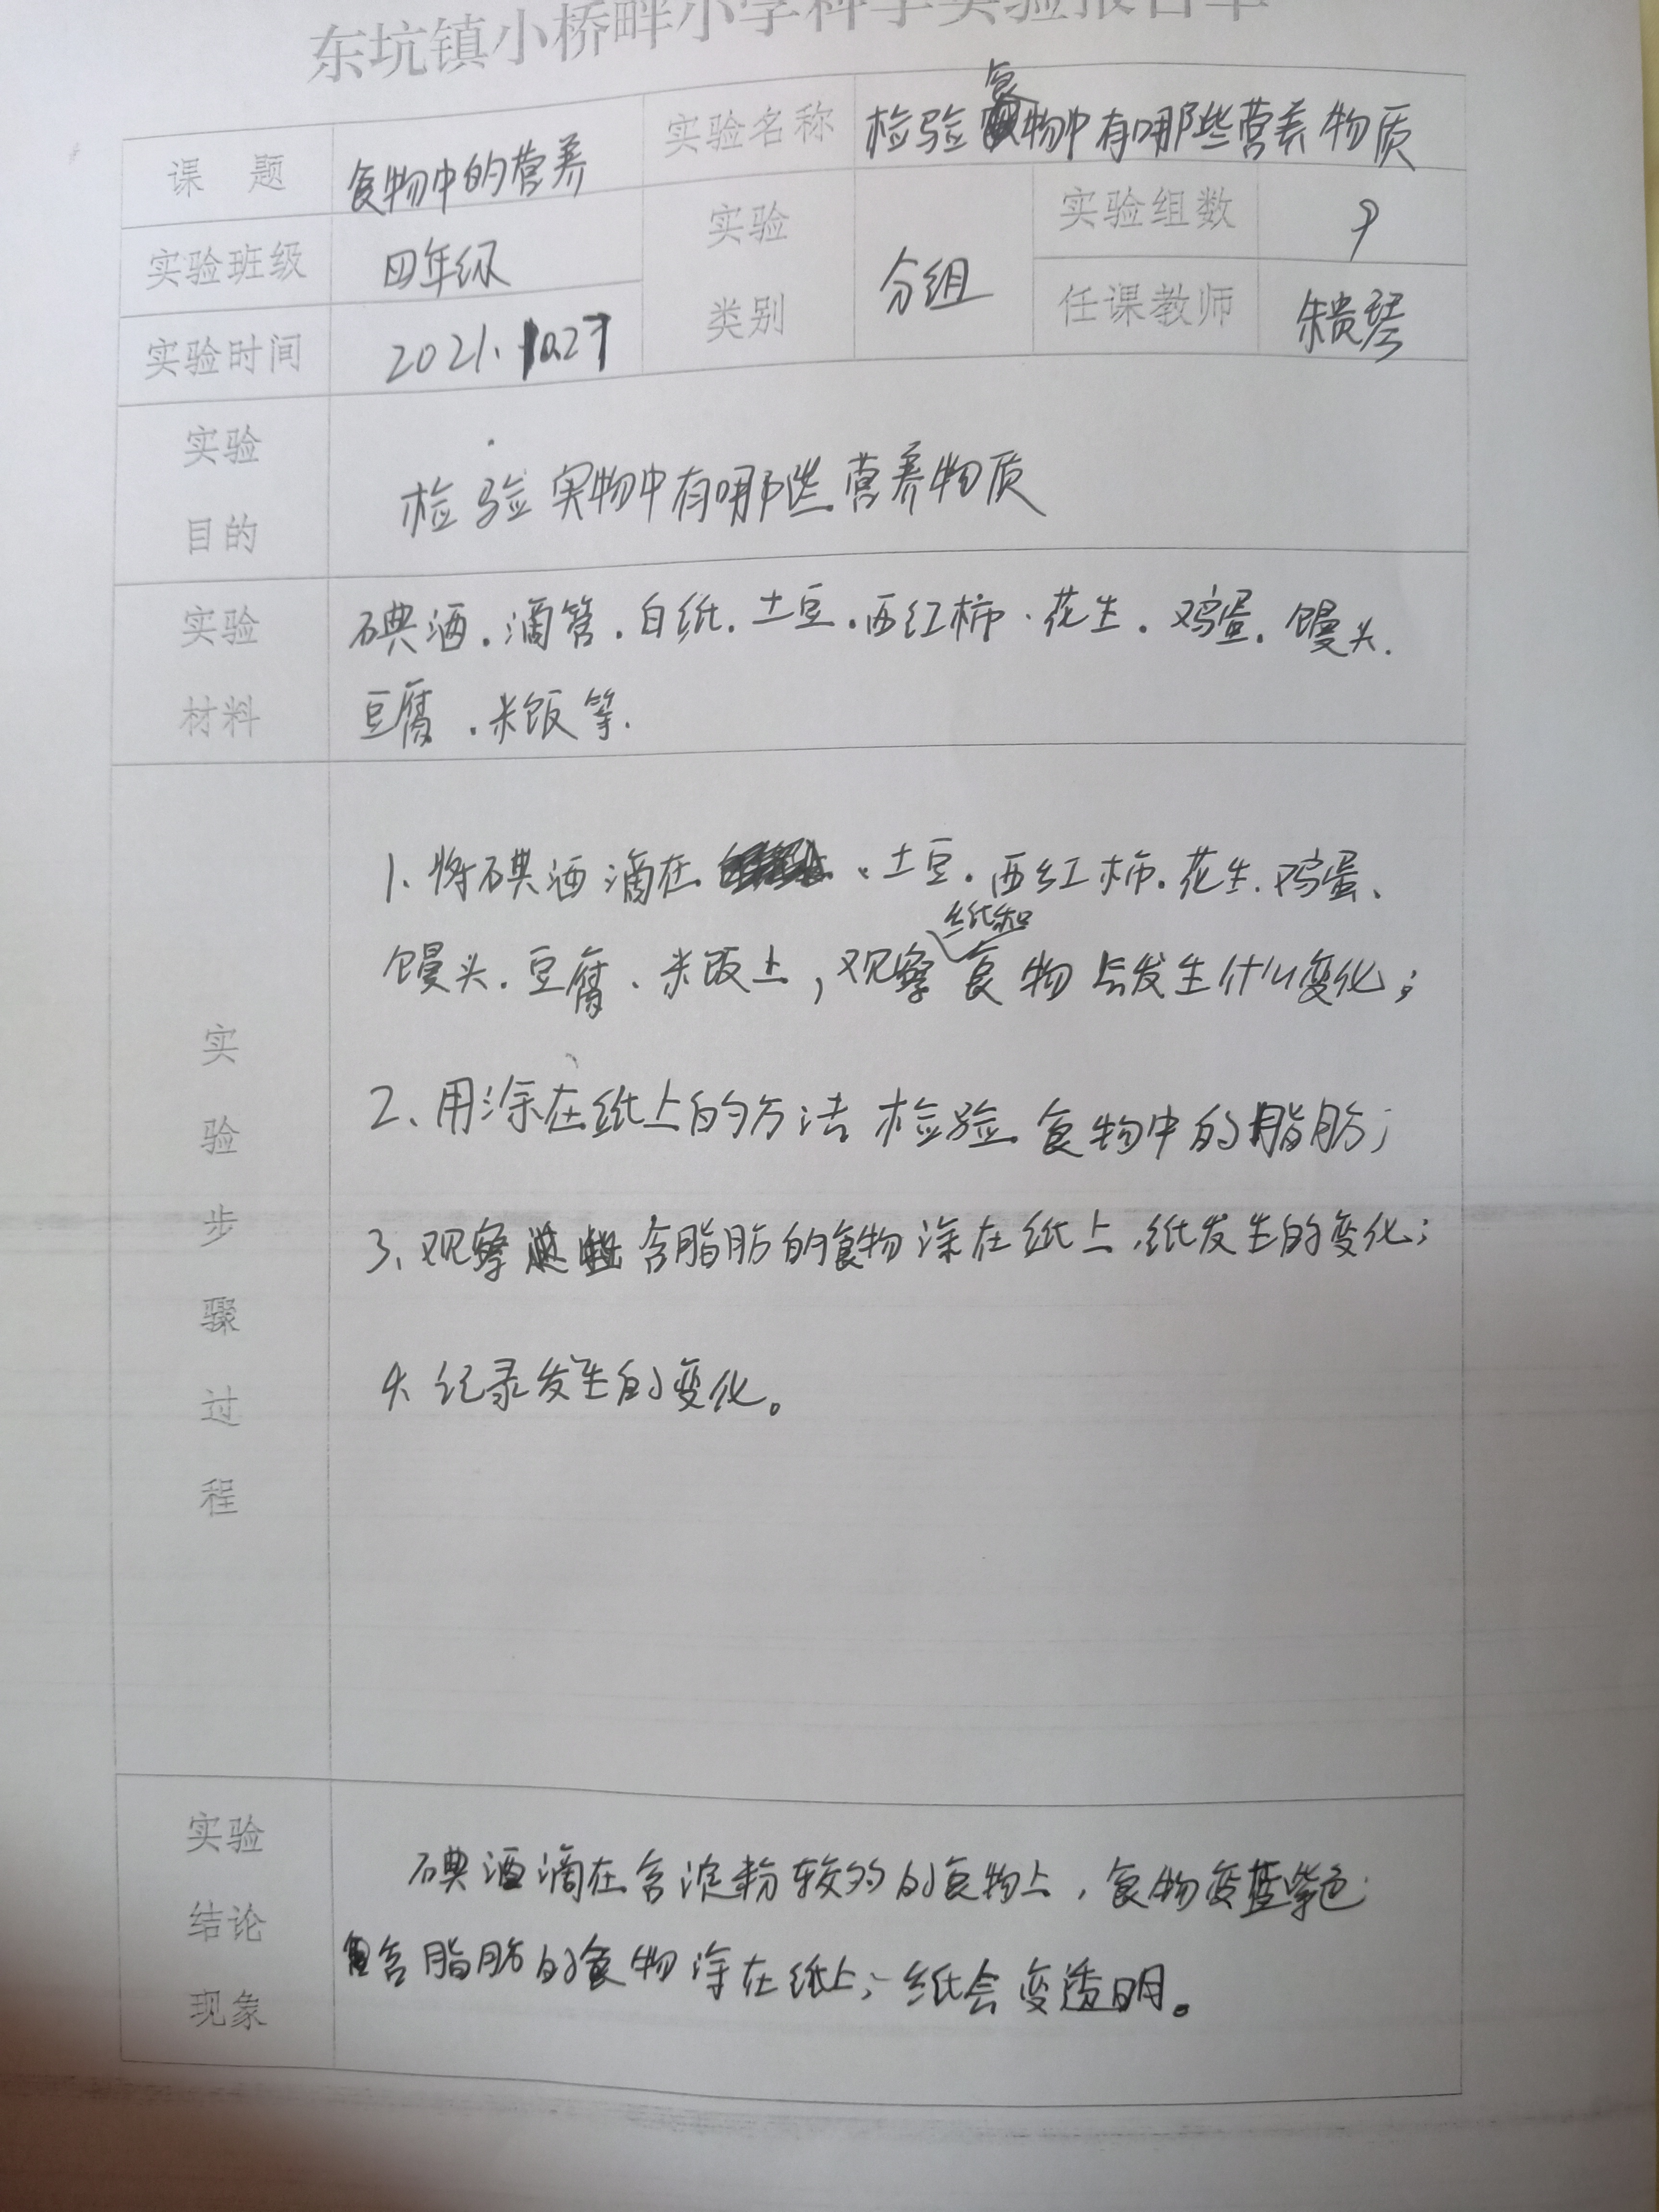 东坑镇小桥畔小学科学实验报告单
课 题 食物中的营养 实验名称 检验食物中有哪些营养物质
实验班级 四年级 实验类别 分组 实验组数 9
实验时间 2021.10.27 任课教师 朱贵琴
实验目的 检验实物中有哪些营养物质
实验材料 碘酒.滴管.白纸.土豆.西红柿.花生.鸡蛋.馒头.
豆腐.米饭等.
实验步骤过程
1、将碘酒滴在、土豆.西红柿.花生.鸡蛋、
馒头.豆腐.米饭上,观察纸和食物上发生什么变化;
2、用涂在纸上的方法检验食物中的脂肪;
3、观察这些含脂肪的食物涂在纸上,纸发生的变化;
4、纪录发生的变化。
实验结论现象
碘酒滴在含淀粉较多的食物上,食物变蓝紫色
含脂肪的食物涂在纸上,纸会变透明。